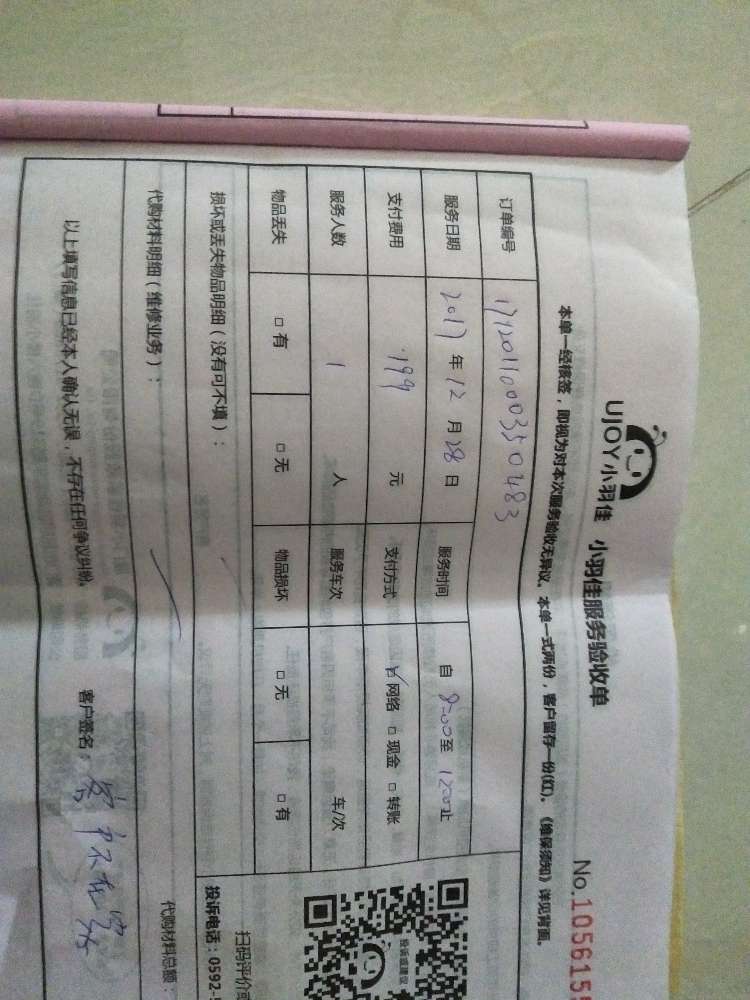 UJOY小羽佳 小羽佳服务验收单
No.1056155
本单一经核签，即视为对本次服务验收无异议。本单一式两份，客户留存一份(红)。《维保须知》详见背面。
订单编号 1712011000350483
服务日期 2017 年 12 月 28 日 服务时间 自 8:00 至 12:00 止
支付费用 199 元 支付方式 ☑网络 □现金 □转账
服务人数 1 人 服务车次 车/次
物品丢失 □有 □无 物品损坏 □无 □有
损坏或丢失物品明细（没有可不填）：
代购材料明细（维修业务）：
代购材料总额：
以上填写信息已经本人确认无误，不存在任何争议纠纷。 客户签名：客户不在家
投诉或建议
扫码评价
投诉电话：0592-5